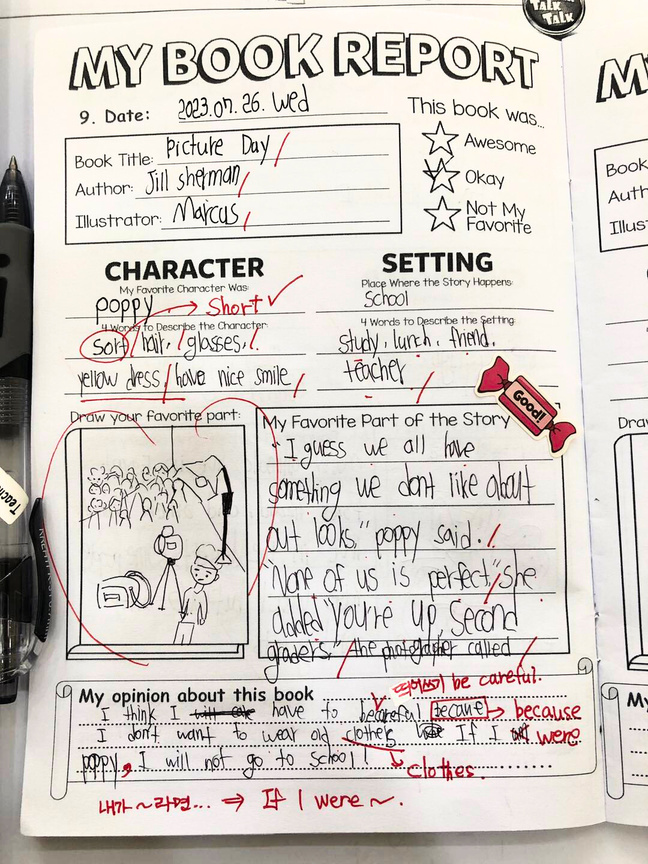 TALK TALK
MY BOOK REPORT
9. Date: 2023.07.26. Wed
This book was...
Awesome
Okay
Not My Favorite
Book Title: Picture Day
Author: Jill sherman
Illustrator: Marcus
CHARACTER
My Favorite Character Was:
poppy
Short
4 Words to Describe the Character:
sort, hair, glasses,
yellow dress, have nice smile
SETTING
Place Where the Story Happens:
School
4 Words to Describe the Setting:
study, lunch, friend,
teacher
Good!
Draw your favorite part:
My Favorite Part of the Story
"I guess we all have
something we dont like about
out looks" poppy said.
"None of us is perfect," she
added "you're up second
graders" the photographer called
My opinion about this book
띄어쓰기 be careful.
I think I have to becareful becane → because
I don't want to wear old clothers If I were
poppy, I will not go to school!
clothes.
내가 ~라면... ⇒ If I were ~.
Book
Auth
Illus
Draw
My